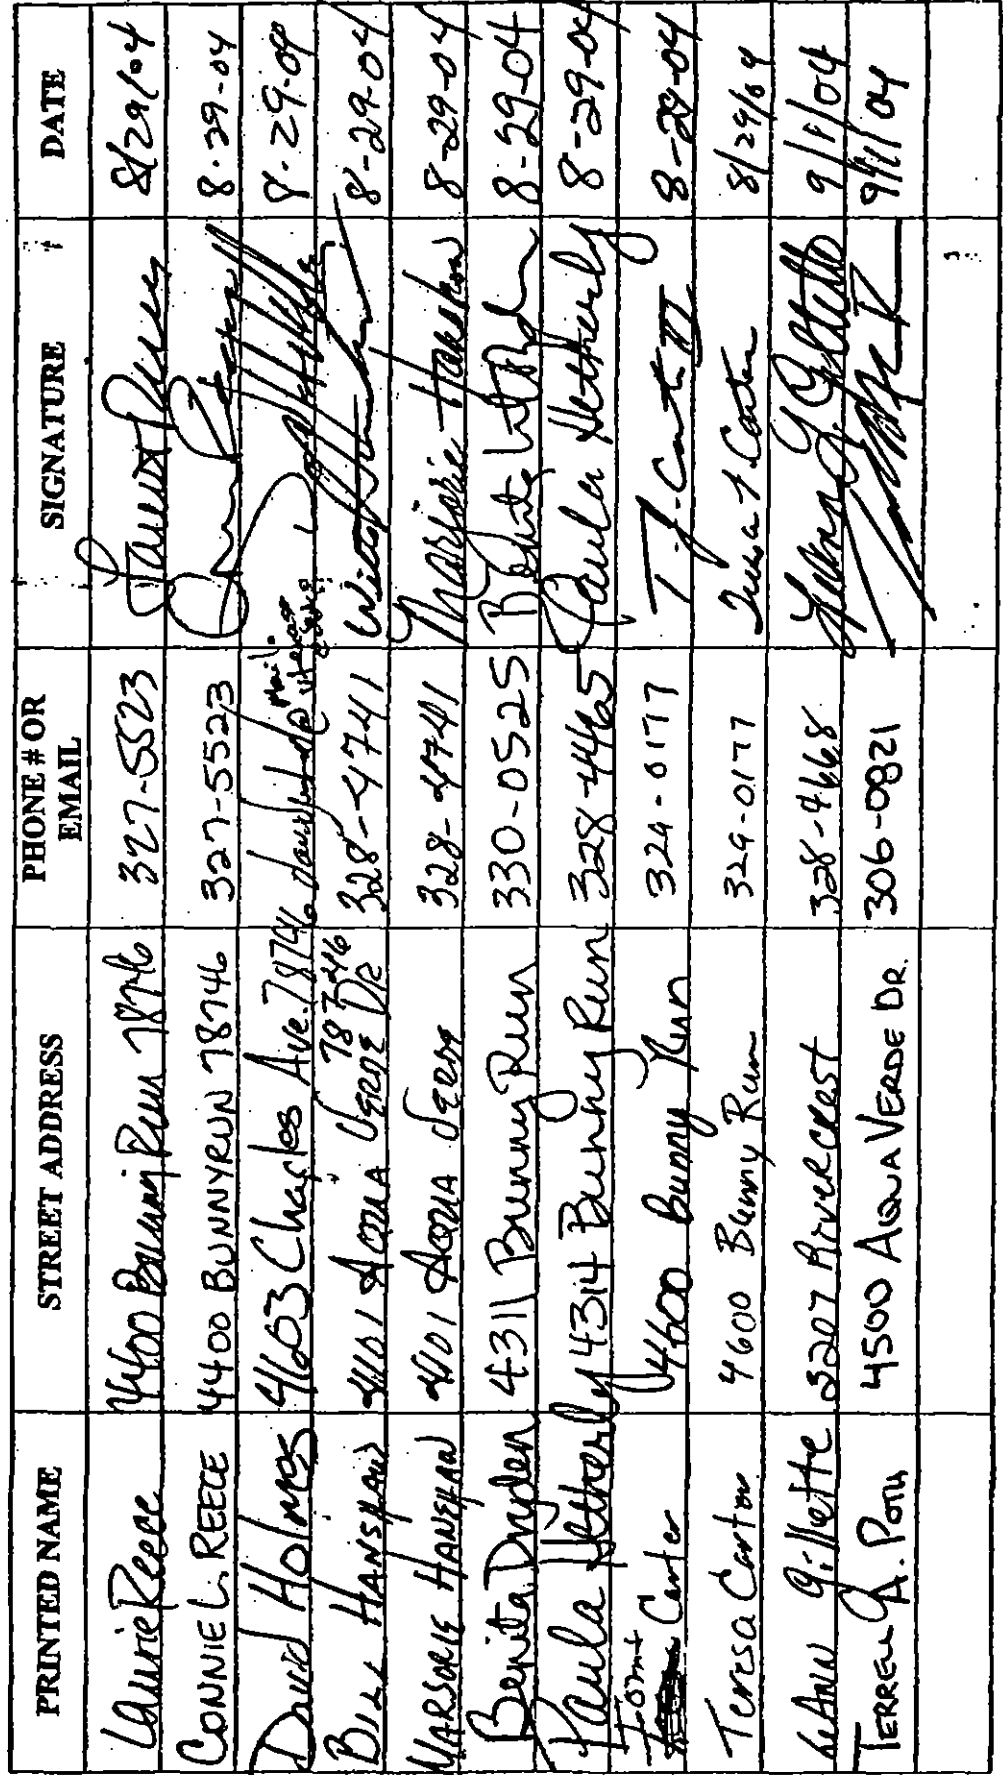 PRINTED NAME STREET ADDRESS PHONE # OR EMAIL SIGNATURE DATE
Laurie Reece 4400 Bunny Run 78746 327-5523 8/29/04
CONNIE L. REECE 4400 BUNNYRUN 78746 327-5523 8-29-04
David Holmes 4603 Charles Ave. 78746 8-29-04
BILL HANSHAW 4401 AQUA VERDE DR 78746 328-4741 8-29-04
MARJORIE HANSHAW 4401 AQUA VERDE 328-4741 Marjorie Hanshaw 8-29-04
Benita Dryden 4311 Bunny Run 330-0525 8-29-04
Paula Hetherly 4314 Bunny Run 328-4465 Paula Hetherly 8-29-04
Carter 4600 Bunny Run 329-0177 T. J. Carter III 8-29-04
Teresa Carter 4600 Bunny Run 329-0177 Teresa F. Carter 8/29/04
LeAnn Gillette 3207 Rivercrest 328-4668 LeAnn Gillette 9/1/04
TERRELL A. 4500 AQUA VERDE DR. 306-0821 9/1/04